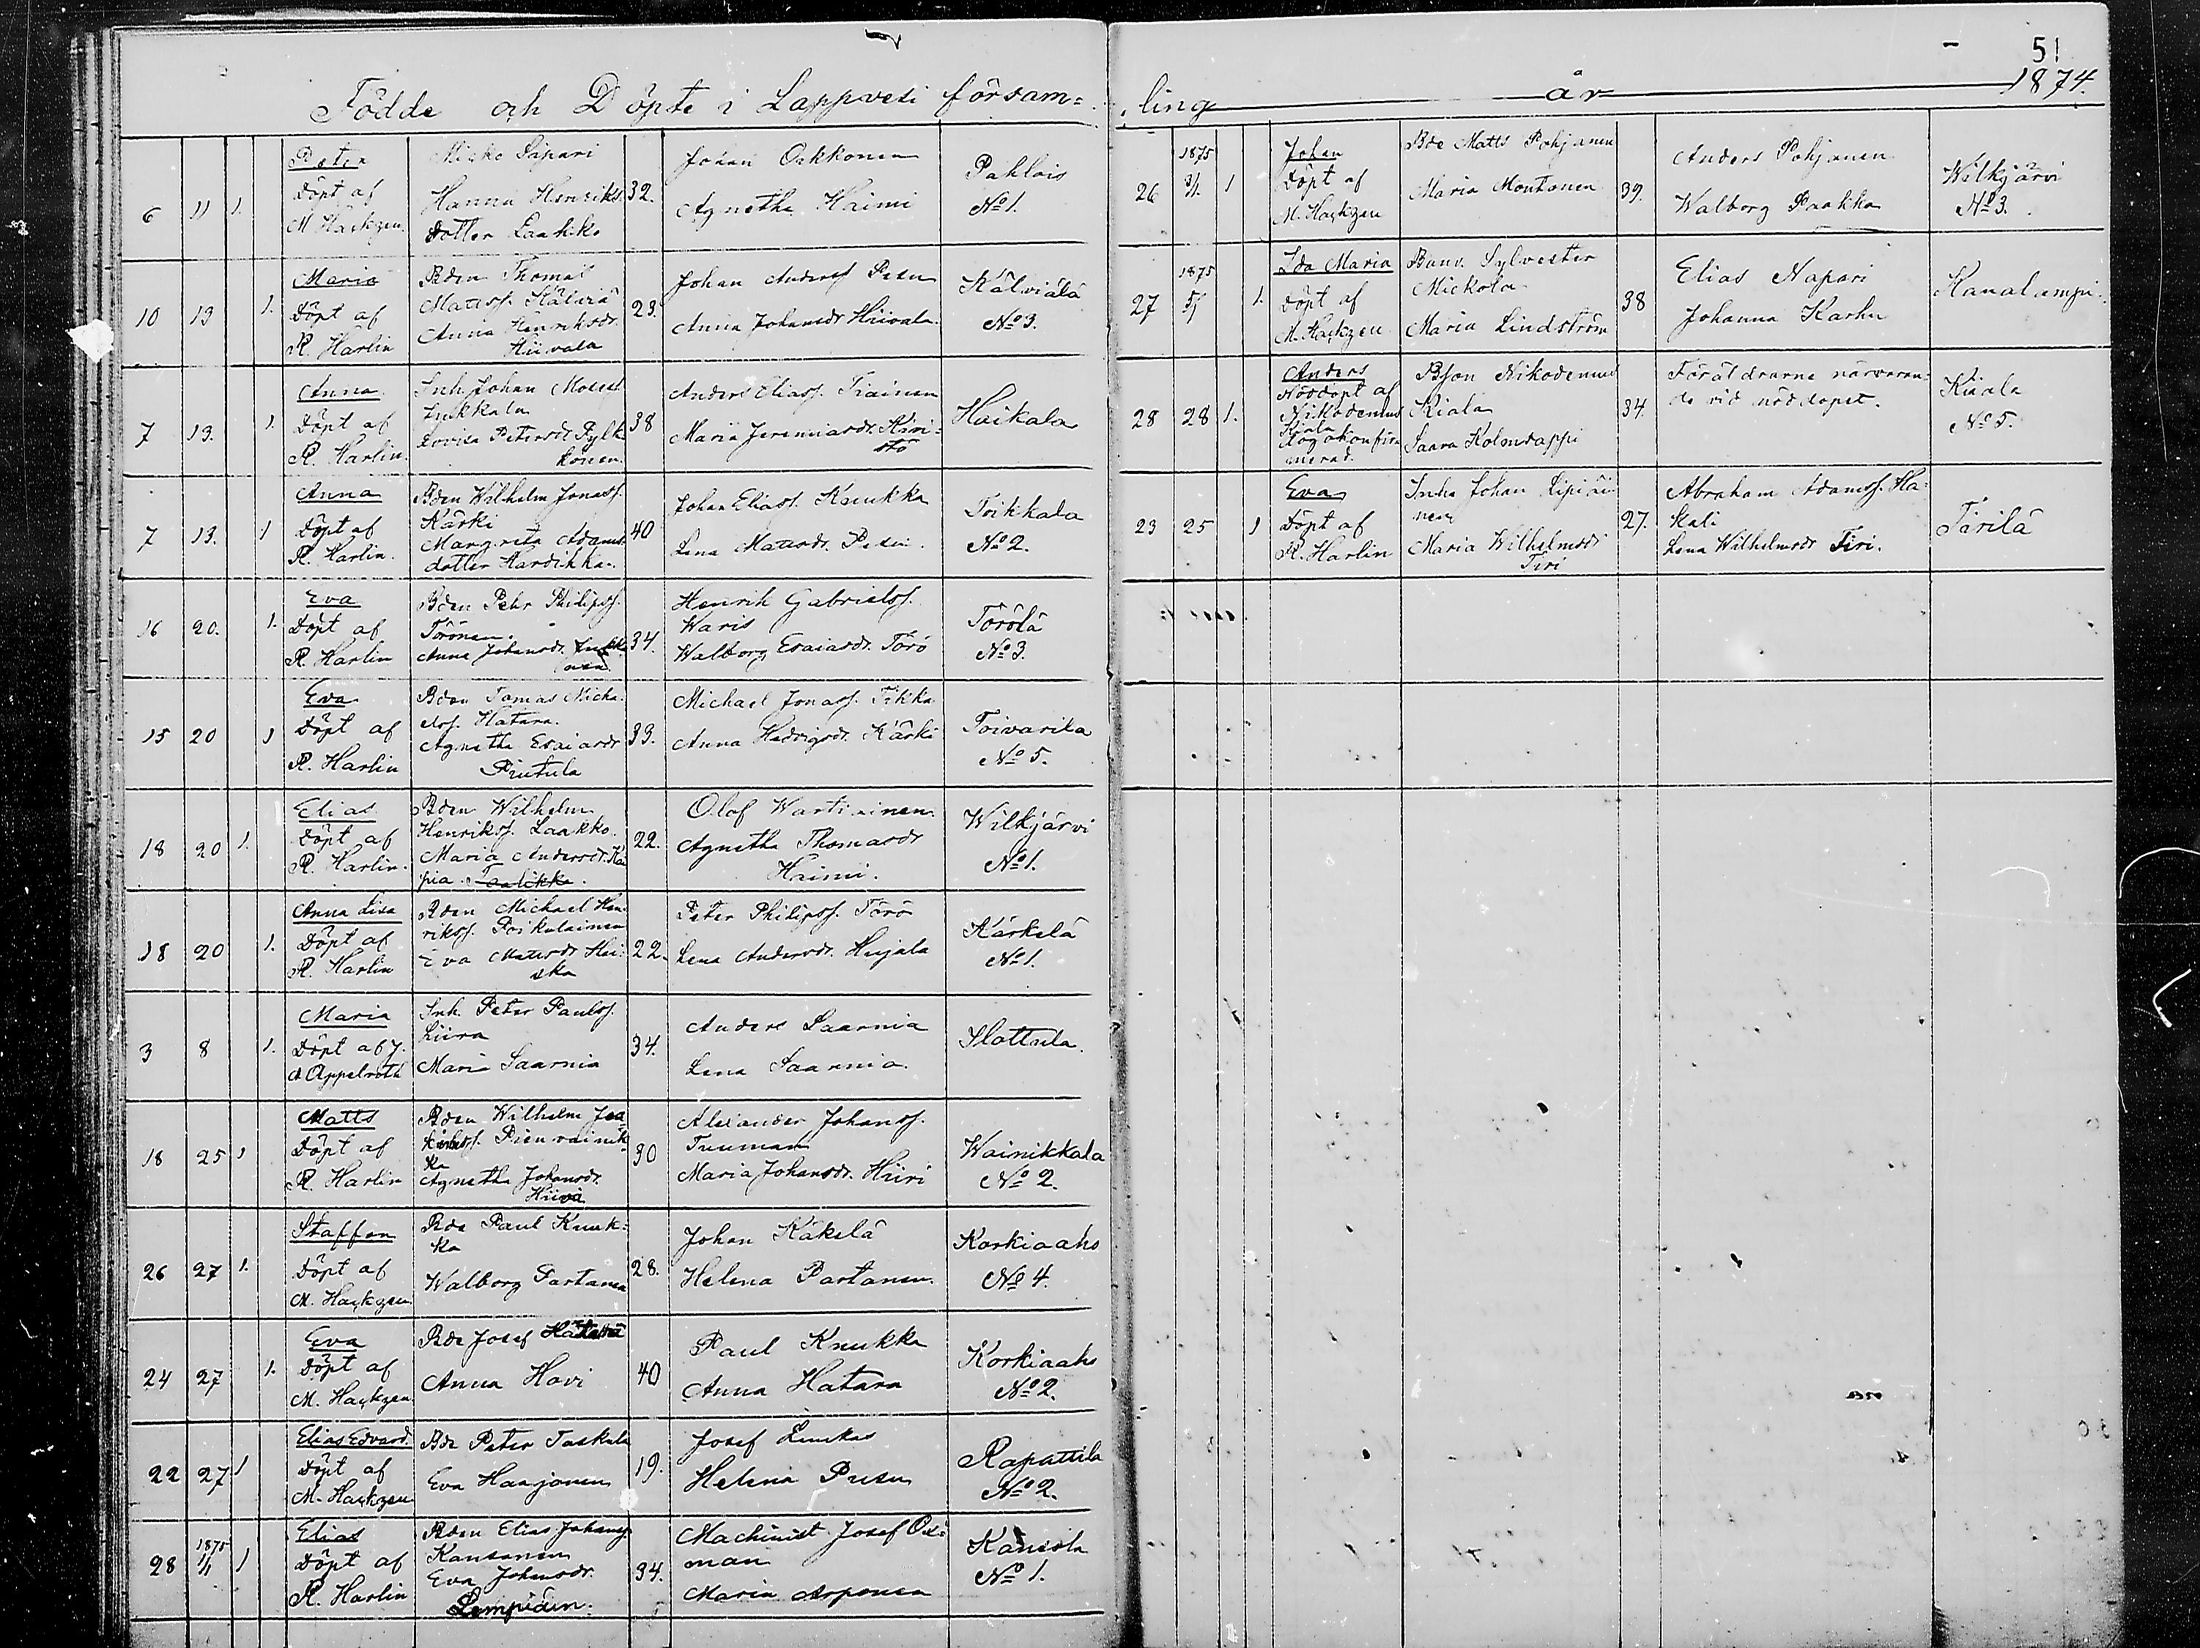 51
Födde och Döpte i Lappvesi försam=
ling år 1874.
6 11 1.
Peter
Döpt af
M. Hackzen
Micko Sipari
Hanna Henriks.
Dotter Laakko
32.
Johan Ockkonen
Agnetha Haimi
Pahlois
No 1.
10 13 1.
Maria
Döpt af
R. Harlin
Bden Thomas
Mattss. Kälviä
Anna Henriksdr.
Hiivala
23.
Johan Anderss. Pesu
Anna Johansdr Hiivala
Kälviälä
No 3.
7 13. 1.
Anna
Döpt af
R. Harlin.
Inh. Johan Mosess.
Lovisa Petersdr Pylk
könen.
38
Anders Eliass. Träinen
Maria Jeremiasdr. Kivi=
stö
Haikala
7 13. 1
Anna
Döpt af
R. Harlin.
Bden Wilhelm Jonass.
Kärki
Margreta Adams
dotter Hardikka.
40
Johan Eliass. Knukka
Lena Mattsdr. Pesu.
Toikkala
No 2.
16 20. 1.
Eva
Döpt af
R. Harlin
Bden Pehr Philipss.
Törönen.
Anna Johansdr.
34.
Henrik Gabrielss.
Waris
Walborg Esaiasdr. Törö
Törölä
No 3.
15 20 1
Eva
Döpt af
R. Harlin
Bden Tomas Micha.
elss. Hatara.
Agnetha Esaiasdr
Piutula
33.
Michael Jonass. Tikka
Anna Hedvigsdr. Kärki
Toivarila
No 5.
18 20 1.
Elias
Döpt af
R. Harlin.
Bden Wilhelm
Henrikss. Laakko.
Maria Andersdr. Ka
pia. Taalikka.
22.
Olof Wartiainen
Agnetha Thomasdr
Haimi.
Wilkjärvi
No 1.
18 20 1.
Anna Lisa
Döpt af
R. Harlin
Bden Michael Hen
rikss. Poikolainen
Eva Mattsdr Hei=
ska
22.
Peter Philipss. Törö
Lena Andersdr. Hujala
Kärkelä
No 1.
3 8 1.
Maria
Döpt af J.
A Appelroth
Inh. Peter Paulss.
Liira
Maria Saarnia
34.
Anders Saarnia
Lena Saarnia.
Hottula.
18 25 1
Matts
Döpt af
R. Harlin
Bden Wilhelm Joa
kimss. Pien rainik
ka
Agnetha Johansdr.
Hiiri
30
Alexander Johanss.
Tuuman
Maria Johansdr. Hiiri
Wainikkala
No 2.
26 27 1.
Staffan
Döpt af
M. Hackzen
Bde Paul Knuk=
ka
Walborg Partanen
28.
Johan Käkelä
Helena Partanen.
Korkiaaho
No 4.
24 27 1.
Eva
Döpt af
M. Hackzen
Bde Josef Hatara
Anna Hovi
40
Paul Knukka
Anna Hatara
Korkiaaho
No 2.
22 27 1
Elias Edvard.
Döpt af
M. Hackzen
Bde Peter Taskula
Eva Haajonen
19.
Josef Linckas
Helena Pusu
Rapattila
No 2.
28 1875 1/1 1
Elias
Döpt af
R. Harlin
Bden Elias Johanss
Kansanen
Eva Johansdr.
Lempiäin.
34.
Machinist Josef Öst=
man
Maria Arponen
Kansola
No 1.
26 1875 3/1. 1
Johan
Döpt af
M. Hackzen
Bde Matts Pohjanen
Maria Montonen
39.
Anders Pohjanen
Walborg Paakka
Wilkjärvi
No 3.
27 1875 5/1 1.
Ida Maria
Döpt af
M. Hackzen
Banv. Sylvester
Mickola
Maria Lindström
38
Elias Napari
Johanna Karhu
Kanalampi.
28 28 1.
Anders
Nöddöpt af
Nikodemus
Kiala
dog okonfir
merad.
Bson Nikodemus
Kiala
Saara Kolmsappi
34.
Föräldrarne närvaran=
de vid nöddopet.
Kiala
No 5.
23 25 1
Eva
Döpt af
R. Harlin
Inha Johan Lipiäi
nen
Maria Wilhelmsdr
Tiri
27.
Abraham Adamss. Ha=
kali
Lena Wilhelmsdr Tiri.
Tärilä